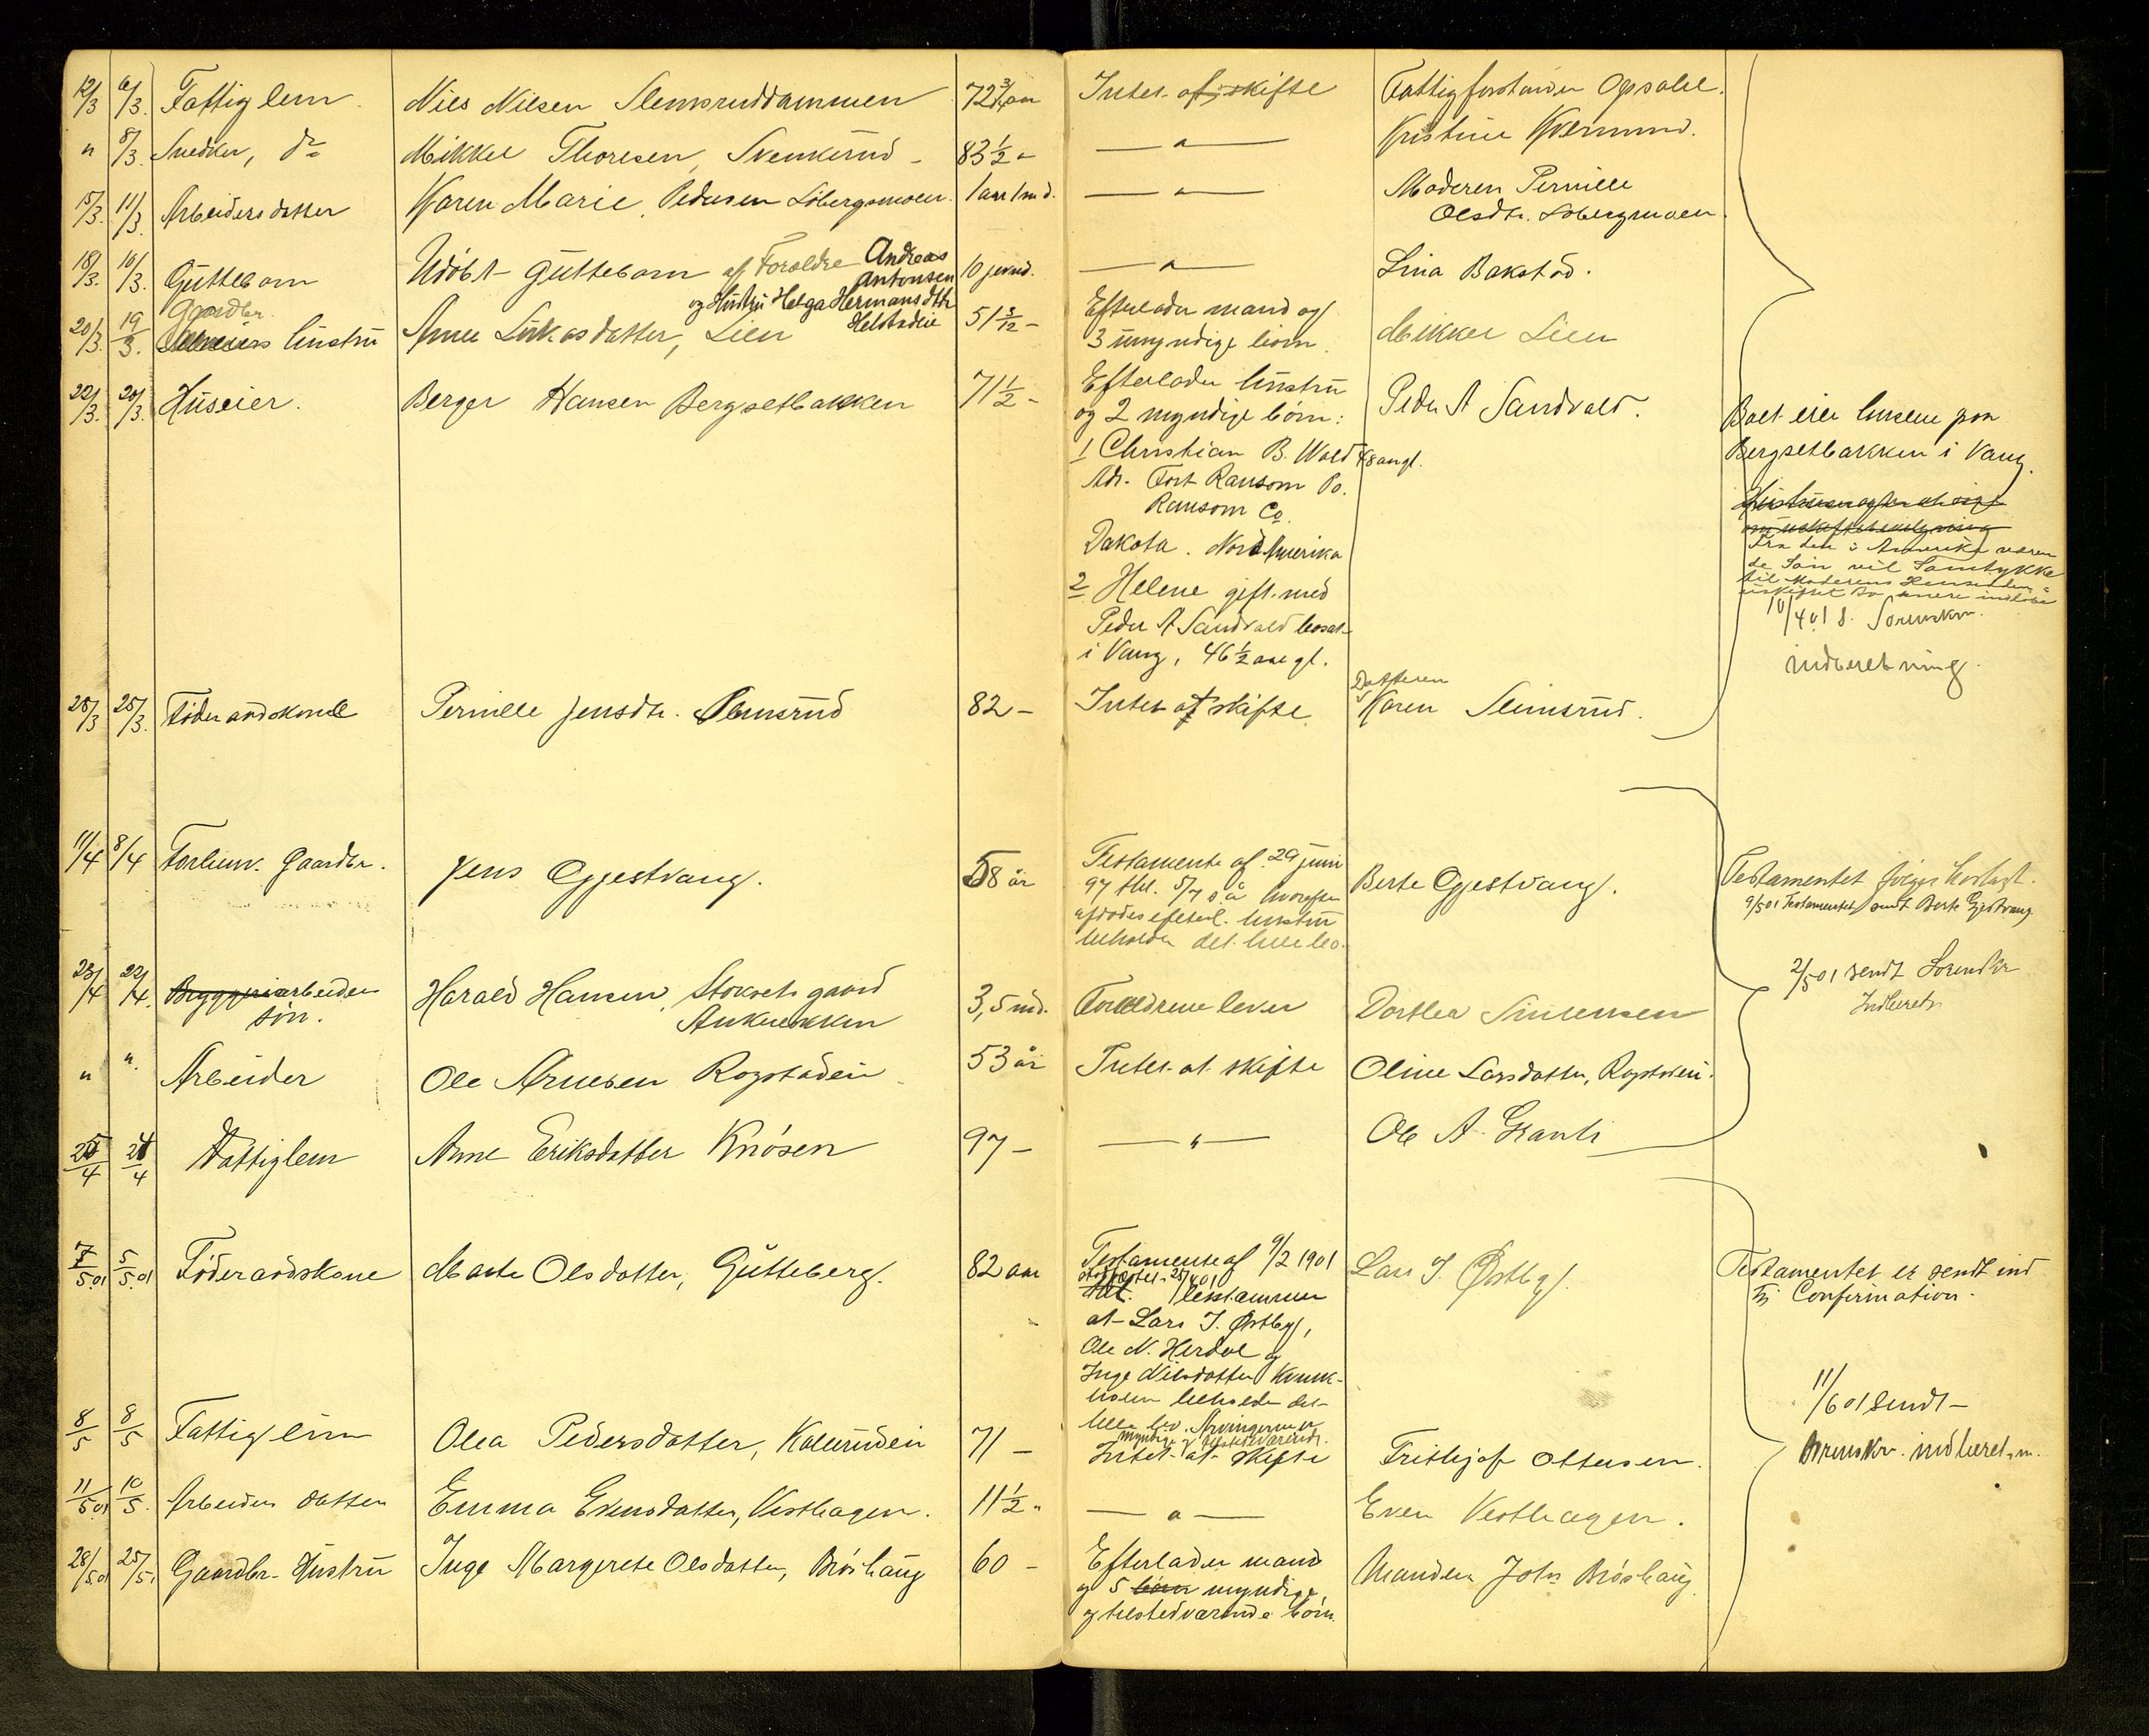 12/3 6/3. Fattiglem Niels Nilsen Slemsruddammen 72 3/4 aar Intet at skifte Fattigforstander Opsahl.
" 8/3. Snedker, do Mikkel Thoresen, Svenkerud 83 1/2 " — " — Kristine Kvernmo.
15/3. 11/3. Arbeidersdatter Karen Marie Pedersen Løbergsmoen 1 aar 1 md. — " — Moderen Pernille
Olsdtr. Løbergsmoen.
18/3. 16/3. Guttebarn Udøbt Guttebarn af Forældre Andreas 10 — " — Lina Bakstad.
Antonsen
og Hustru Helga Hermansdtr
Helstadeie
Gaardbr.
20/3. 19/3. hustru Anne Lukasdatter, Lien 51 3/12 - Efterlader mand og Mikkel Lien
3 umyndige børn.
22/3. 20/3. Huseier. Berger Hansen Bergsetbakken 71 1/2 - Efterlader hustru Peder A Sandvold.
og 2 myndige børn:
1 Christian B. Wold 48 aar gl.
Adr. Fort Ransom Po.
Ransom Co.
Dakota. Nord Amerika
2 Helene gift med
Peder A Sandvold bosat
i Vang, 46 1/2 aar gl.
Boet eier husene paa
Bergsetbakken i Vang.
Fra den i Amerika væren
de Søn vil Samtykke
til Moderens Hensidden i
uskiftet Bo senere indløbe
10/4 01 S. Sorenskr.
indberetning.
28/3 25/3. Føderaadskone Pernille Jensdtr. Slemsrud 82 - Intet at skifte Datteren
Karen Slemsrud.
11/4 8/4 Forhenv. Gaardbr. Jens Gjestvang. 58 år Testamente af 29 juni Berte Gjestvang.
97 thl. 5/7 s.å. hvorefter
afdødes efterl. hustru
beholder det hele bo.
Testamentet følger
9/5 01 Testamentet sendt Berte Gjestvang
2/5 01 sendt Sorenskr
Indberetn
23/4 22/4. Bryggeriarbeider Harald Hansen, Stokset gaard 3,5 md. Forældrene lever Dorthea Simensen
søn.
" " Arbeider Ole Arnesen Rogstadeie 53 år Intet at skifte Oline Larsdatter, Rogstadeie.
25/4 24/4 Fattiglem Anne Eriksdatter Knøsen 97 - — " — Ole A. Granli
7/5 01 5/5 01 Føderaadskone Marte Olsdatter, Gutteberg. 82 aar Testamente af 9/2 1901 Lars J. Østby.
25/4 01
bestemmer
at Lars J. Østby,
Ole N. Herdal og
Inge Nilsdatter
beholder det
hele bo. Arvingerne er
myndige og tilstedværende.
Testamentet er sendt ind
til Confirmation.
11/6 01 sendt
Sorenskr. indberetn.
8/5 8/5 Fattiglem Olea Pedersdatter, 71 - Intet at skifte Frithjof Ottersen.
11/5 01 10/5. Arbeider datter Emma Evensdatter, Vesthagen. 11 1/2 " — " — Even Vesthagen.
28/5 01 25/5. Gaardbr. Hustru Inge Margrete Olsdatter, Brøshaug 60 - Efterlader mand Manden John Brøshaug.
og 5 børn myndige
og tilstedværende børn.